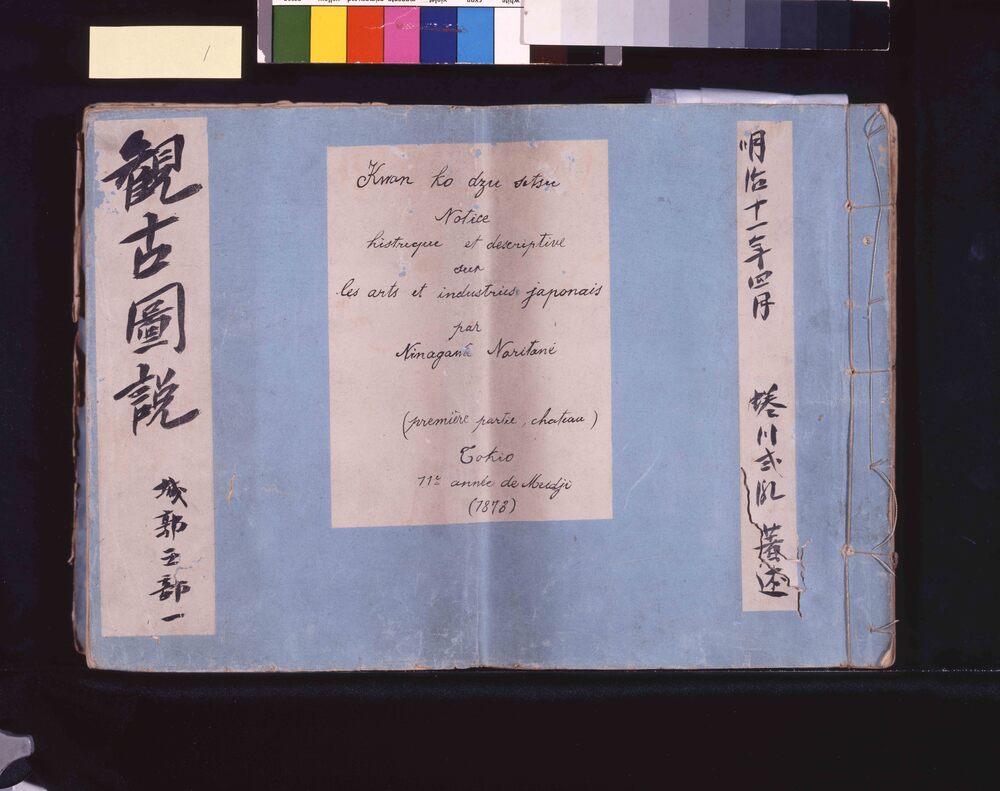 観古圖説
城郭之部一
Kwan ko dzu setsu
Notice
histrique et descriptive
sur
les arts et industries japonais
par
Ninagawa Noritané
(première partie, chateau)
Tokio
11e année de Meidji
(1878)
明治十一年四月
蜷川式胤
著述